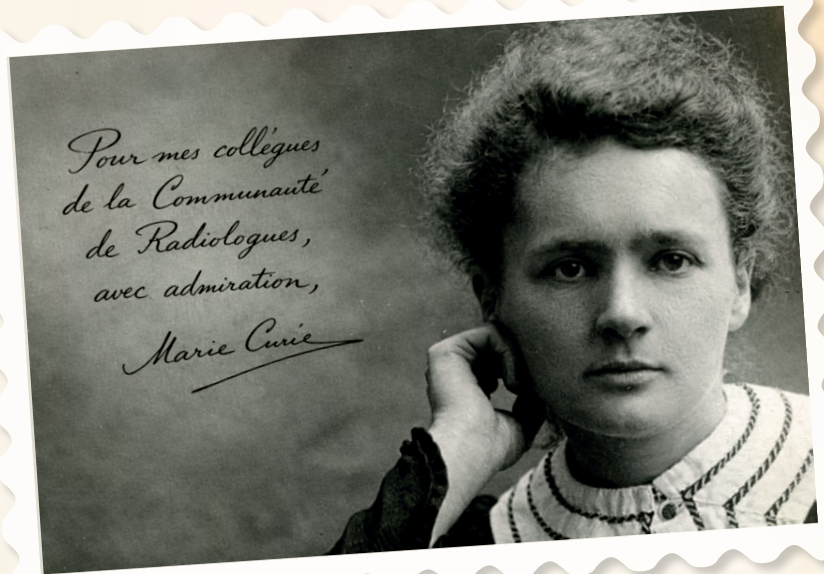 Pour mes collégues
de la Communauté
de Radiologues,
avec admiration,
Marie Curie